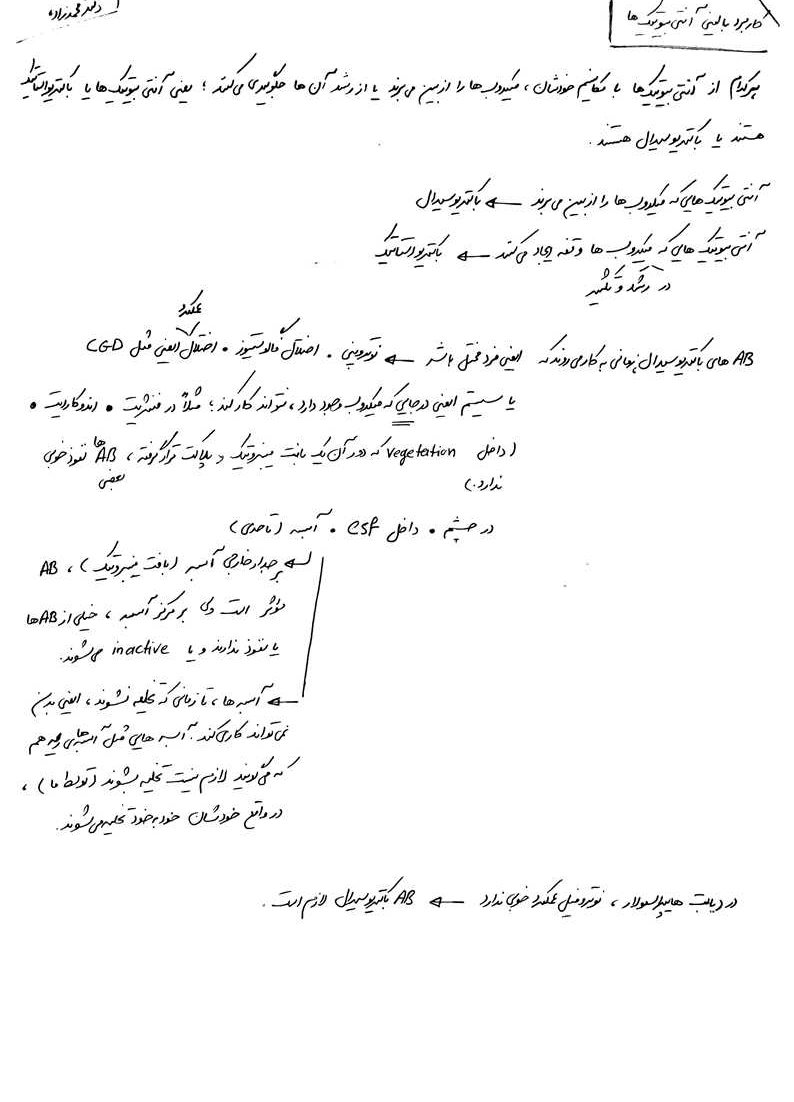 کاربرد بالینی آنتی بیوتیک ها
دکتر محمدزاده
هرکدام از آنتی بیوتیک‌ها با مکانیسم خودشان، میکروب ها را از بین می‌برند یا از رشد آن ها جلوگیری می‌کنند؛ یعنی آنتی بیوتیک ها یا باکتریواستاتیک
هستند یا باکتریوسیدال هستند.
آنتی بیوتیک هایی که میکروب ها را از بین می برند ← باکتریوسیدال
آنتی بیوتیک هایی که میکروب ها وقفه ایجاد می کنند ← باکتریواستاتیک
در رشد و تکثیر
AB های باکتریوسیدال زمانی به کار می روند که ایمنی فرد مختل باشد ← نوتروپنی • اختلال فاگوسیتوز • اختلال عملکرد ایمنی مثل CGD
یا سیستم ایمنی در جایی که میکروب وجود دارد، نتواند کار کند؛ مثلاً در مننژیت • اندوکاردیت •
(داخل vegetation که دور آن یک بافت فیبروتیک و پلاکت قرار گرفته، بعضی AB ها نفوذ خوبی
ندارد.)
در چشم • داخل CSF • آبسه (تاحدی)
← بر جدار خارجی آبسه (بافت فیبروتیک)، AB
مؤثر است ولی بر مرکز آبسه، خیلی از AB ها
یا نفوذ ندارند و یا inactive می‌شوند.
← آبسه ها، تا زمانی که تخلیه نشوند، ایمنی بدن
نمی تواند کاری کند. آبسه هایی مثل آبسه‌های ریه هم
که می گویند لازم نیست تخلیه بشوند (توسط ما)،
در واقع خودشان خود به خود تخلیه می شوند.
در دیابت هایپراسمولار، نوتروفیل عملکرد خوبی ندارد ← AB باکتریوسیدال لازم است.